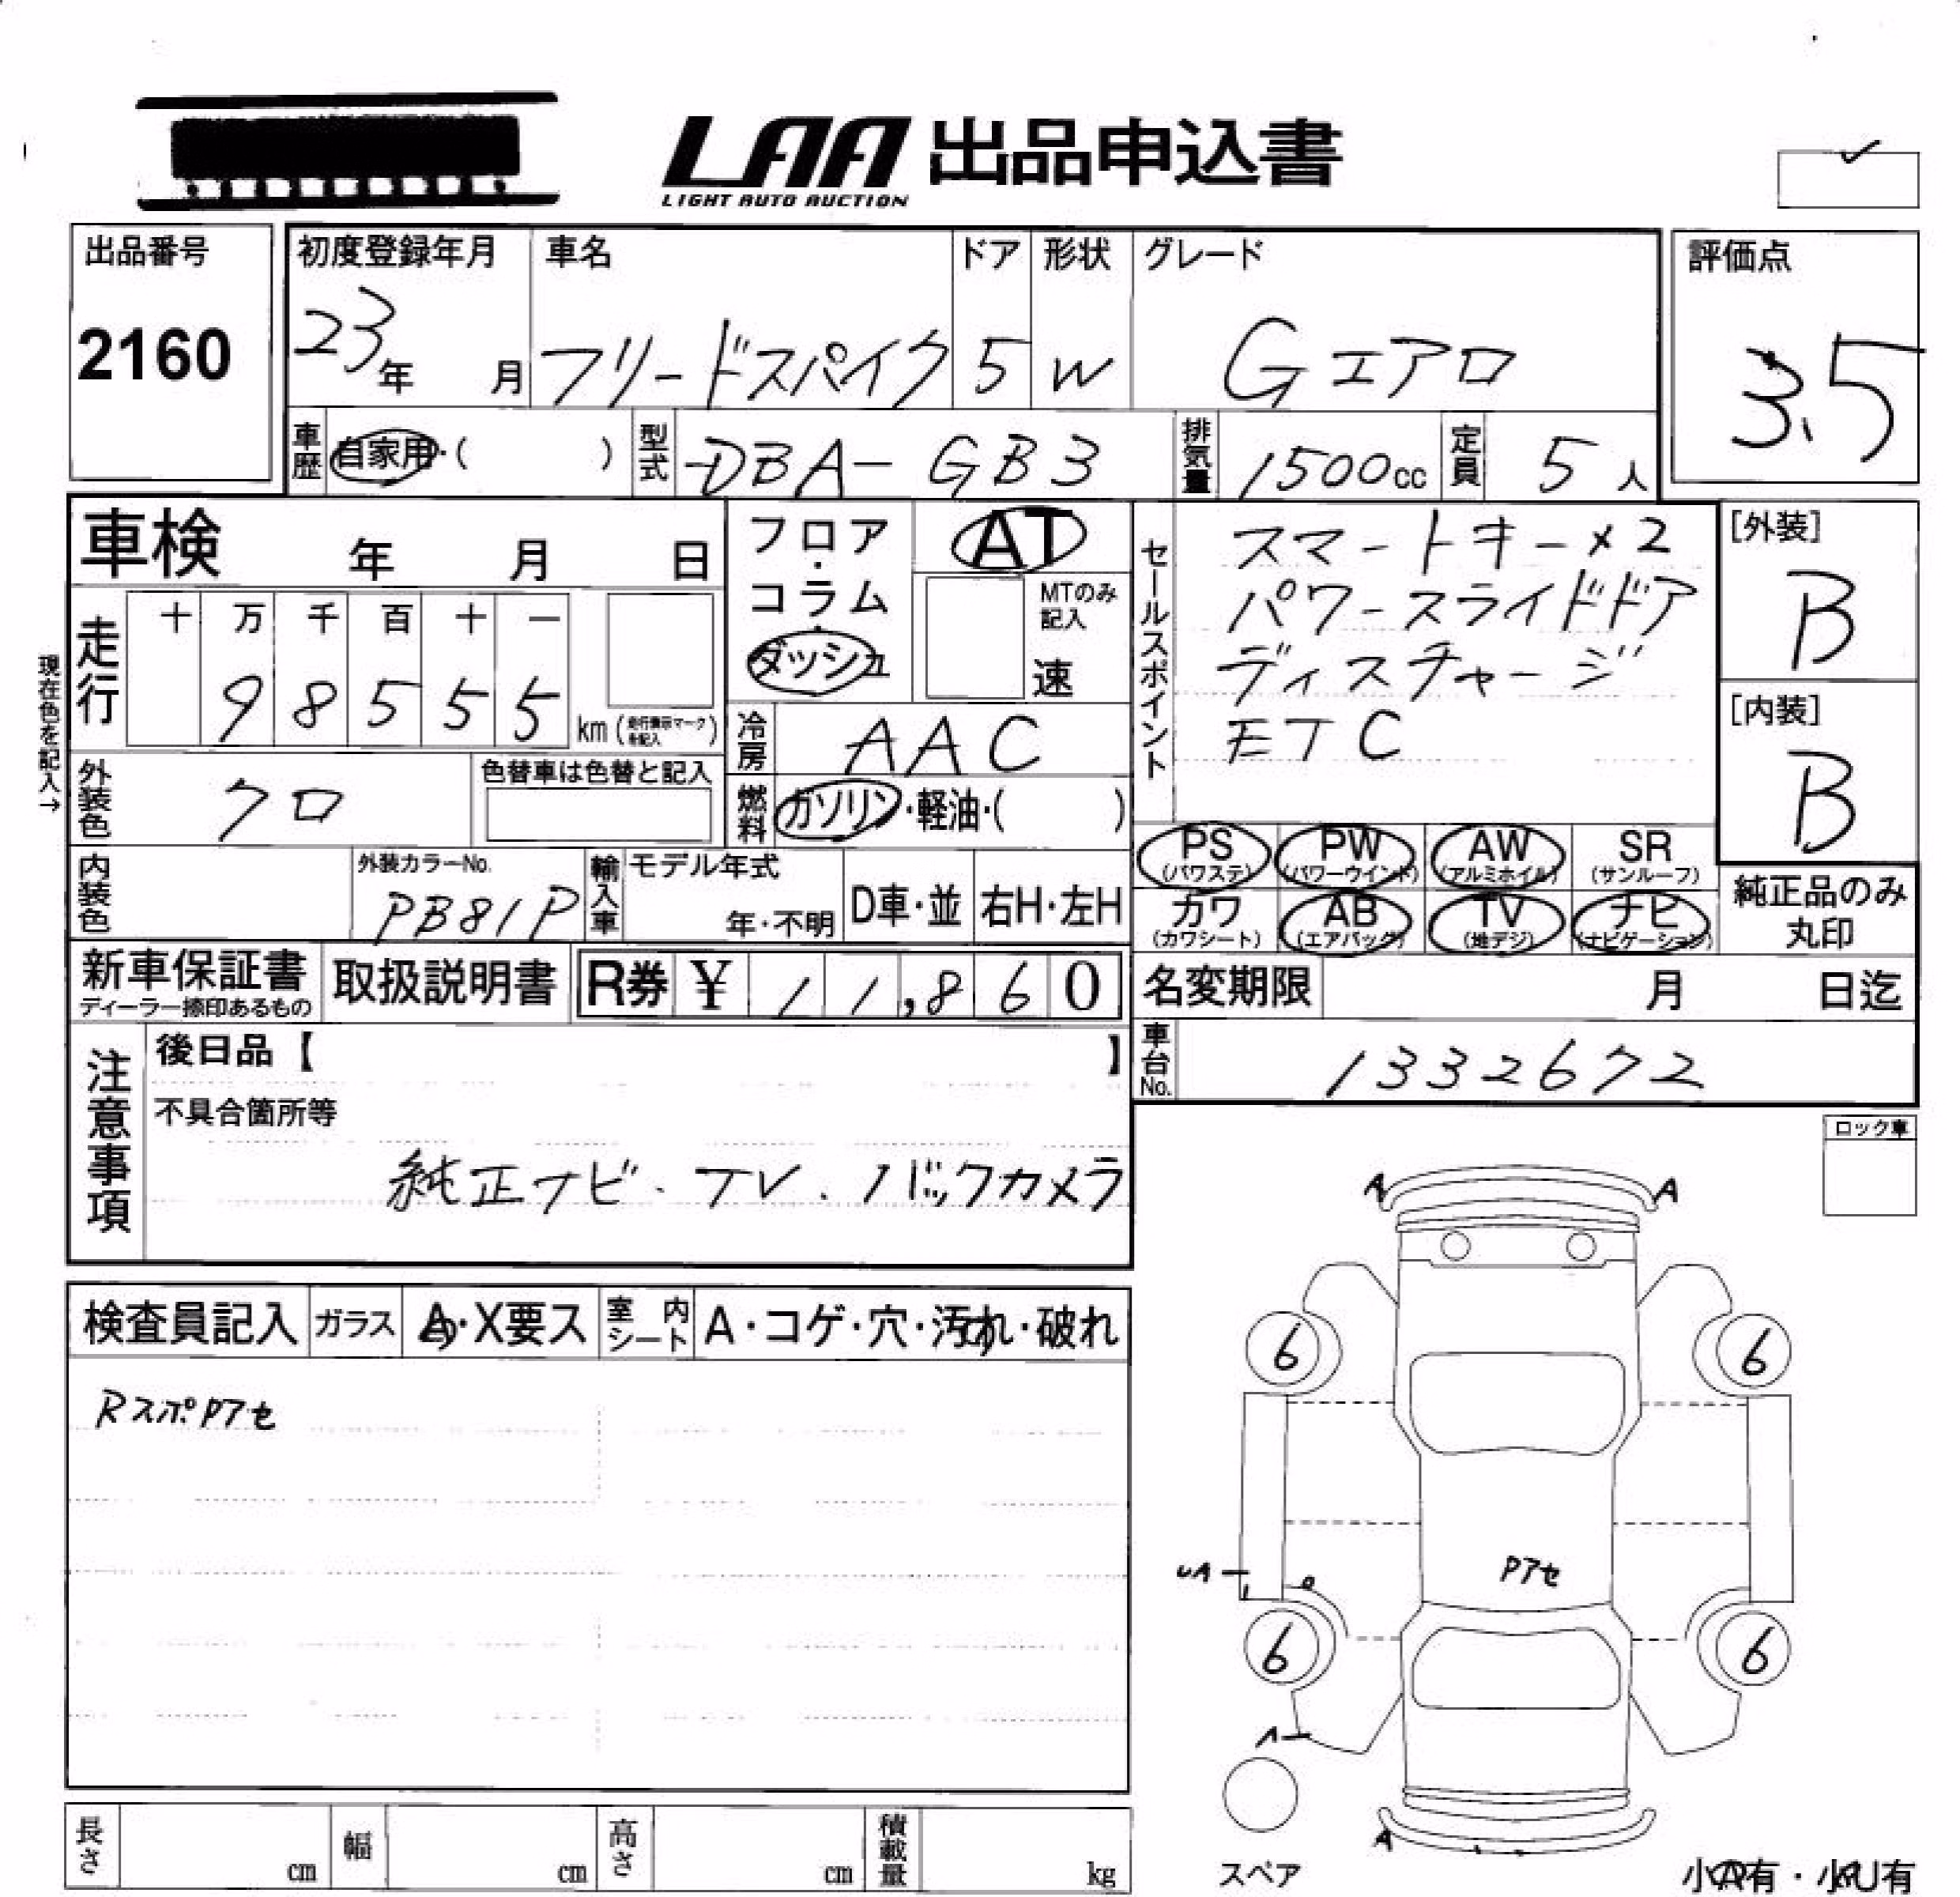 LAA 出品申込書
LIGHT AUTO AUCTION
出品番号
2160
初度登録年月
23年 月
車名
フリードスパイク
ドア
5
形状
W
グレード
Gエアロ
評価点
3.5
車歴
自家用・( )
型式
DBA-GB3
排気量
1500cc
定員
5人
車検 年 月 日
フロア・
コラム・
ダッシュ
AT
MTのみ
記入
速
セールスポイント
スマートキー×2
パワースライドドア
ディスチャージ
ETC
[外装]
B
[内装]
B
現在色を記入→
走行
十 万 千 百 十 一
9 8 5 5 5 km (走行表示マークを記入)
冷房
AAC
外装色
クロ
色替車は色替と記入
燃料
ガソリン・軽油・( )
内装色
外装カラーNo.
PB81P
輸入車
モデル年式
年・不明
D車・並
右H・左H
PS (パワステ)
PW (パワーウインド)
AW (アルミホイル)
SR (サンルーフ)
カワ (カワシート)
AB (エアバッグ)
TV (地デジ)
ナビ (ナビゲーション)
純正品のみ
丸印
新車保証書
ディーラー捺印あるもの
取扱説明書
R券 ¥ 11,860
名変期限 月 日迄
車台No.
1332672
注意事項
後日品【 】
不具合箇所等
純正ナビ・TV・バックカメラ
ロック車
検査員記入
ガラス
A・X要ス
室内シート
A・コゲ・穴・汚れ・破れ
RスポPアセ
A A
6 6
UA
Pアセ
6 6
A
A
スペア
小A有・小U有
長さ cm
幅 cm
高さ cm
積載量 kg